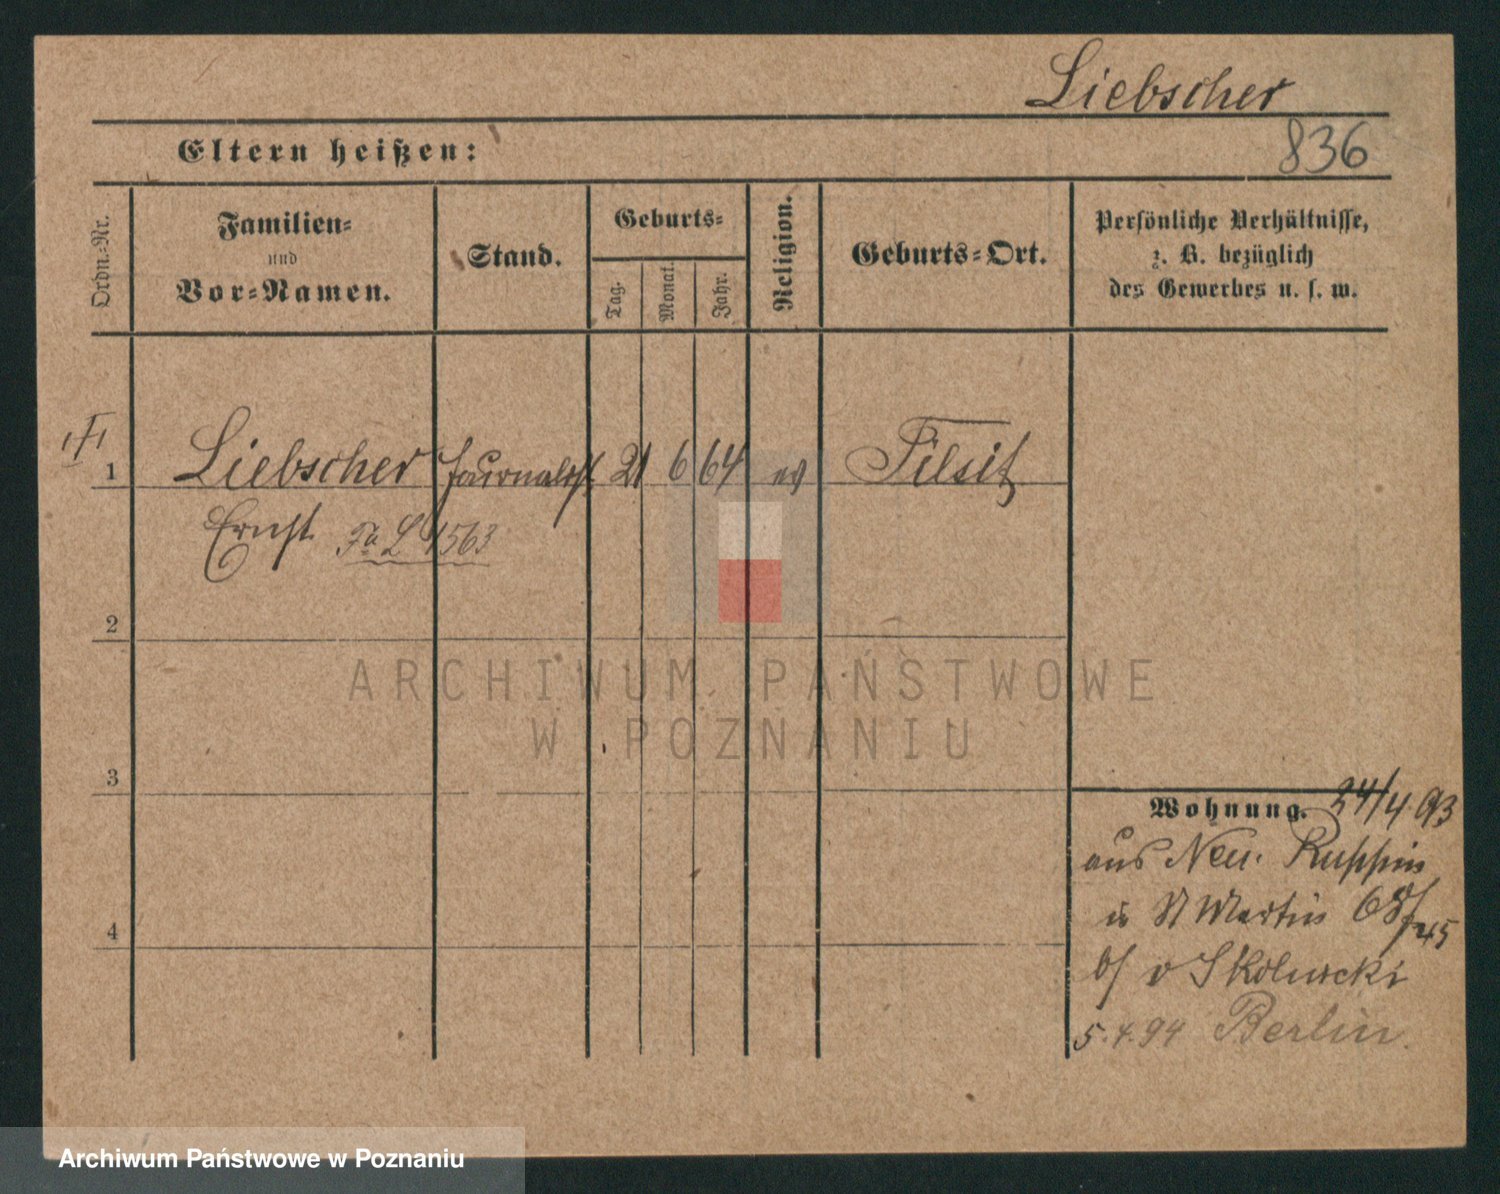 Liebscher
836
Eltern heißen:
Ordn.-Nr.
Familien-
und
Vor-Namen.
Stand.
Geburts-
Tag.
Monat.
Jahr.
Religion.
Geburts-Ort.
Persönliche Verhältnisse,
z. B. bezüglich
des Gewerbes u. s. w.
1 Liebscher Journalist 21 6 64 ev Tilsit
Ernst Fa L 1563
2
3
4
Wohnung. 24/4 93
aus Neu. Ruppin
St Martin 68/
b/ v Skolnicki
5.4.94 Berlin.
ARCHIWUM PAŃSTWOWE
W POZNANIU
Archiwum Państwowe w Poznaniu